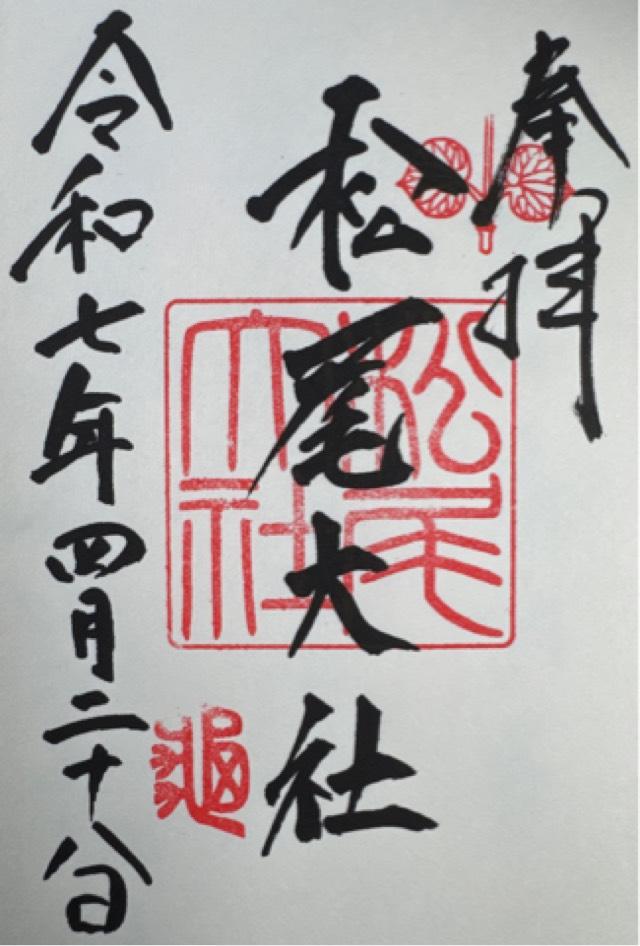 奉拝
松尾大社
松尾大社
亀
令和七年四月二十八日